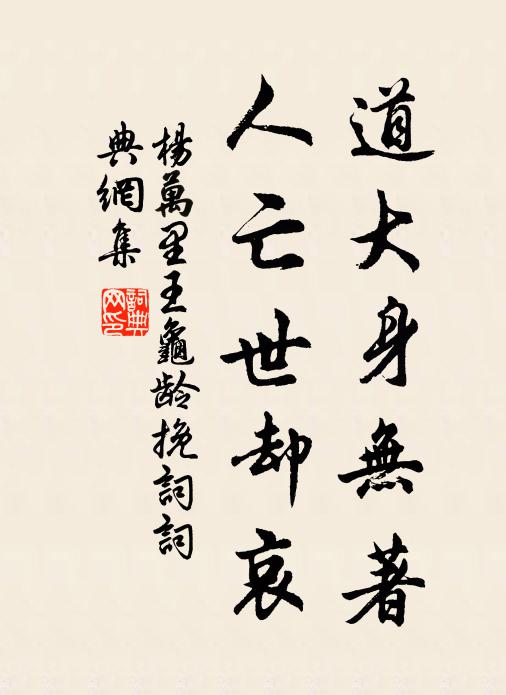 道大身無著
人亡世却哀
楊萬里王龜齡挽詞詞
典網集
詞典网印